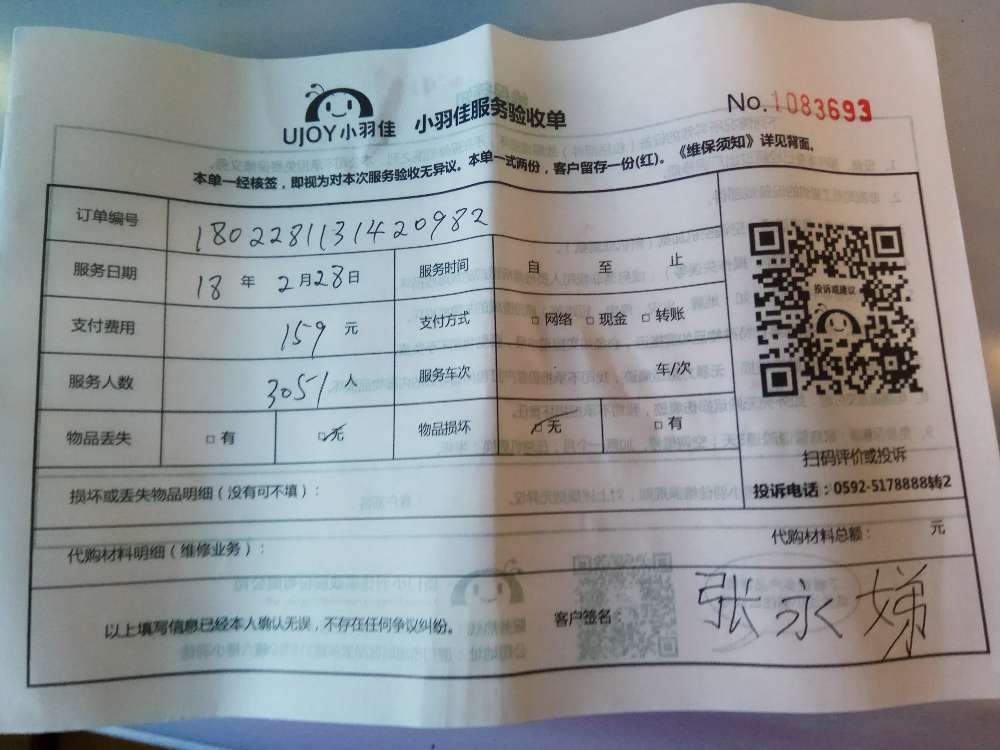 UJOY小羽佳 小羽佳服务验收单 No.1083693
本单一经核签，即视为对本次服务验收无异议。本单一式两份，客户留存一份(红)。《维保须知》详见背面。
订单编号 1802281131420982
服务日期 18年2月28日 服务时间 自 至 止
支付费用 159元 支付方式 □网络 □现金 □转账
服务人数 3051人 服务车次 车/次
物品丢失 □有 □无 物品损坏 □无 □有
投诉或建议
扫码评价或投诉
投诉电话：0592-5178888转2
损坏或丢失物品明细（没有可不填）：
代购材料明细（维修业务）： 代购材料总额： 元
以上填写信息已经本人确认无误，不存在任何争议纠纷。 客户签名： 张永娣